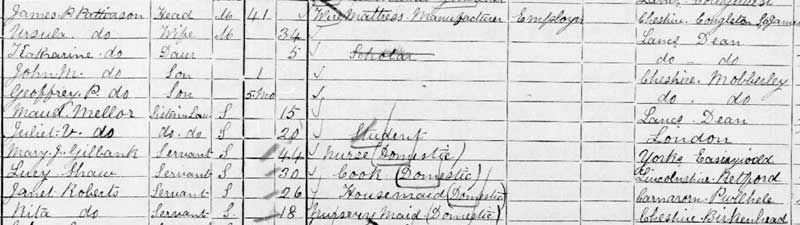 James P. Pattinson Head M 41 Wire Mattress Manufacturer Employer Cheshire Congleton St James
Ursula. do Wife M 34 Lancs Dean
Katharine. do Daur 5 Scholar do - do
John M. do Son 1 Cheshire. Mobberley
Geoffrey. P. do Son 5 Mo do . do
Maud. Mellor Sister in Law S 15 Lancs. Dean
Juliet. V. do do. do S 20 Student London
Mary. J. Gilbank Servant S 44 Nurse (Domestic) Yorks Easingwold
Lucy. Shaw Servant S 30 Cook (Domestic) Lincolnshire. Retford
Janet Roberts Servant S 26 Housemaid (Domestic) Carnarvon. Pwllheli
Rita do Servant S. 18 Nursery Maid (Domestic) Cheshire. Birkenhead